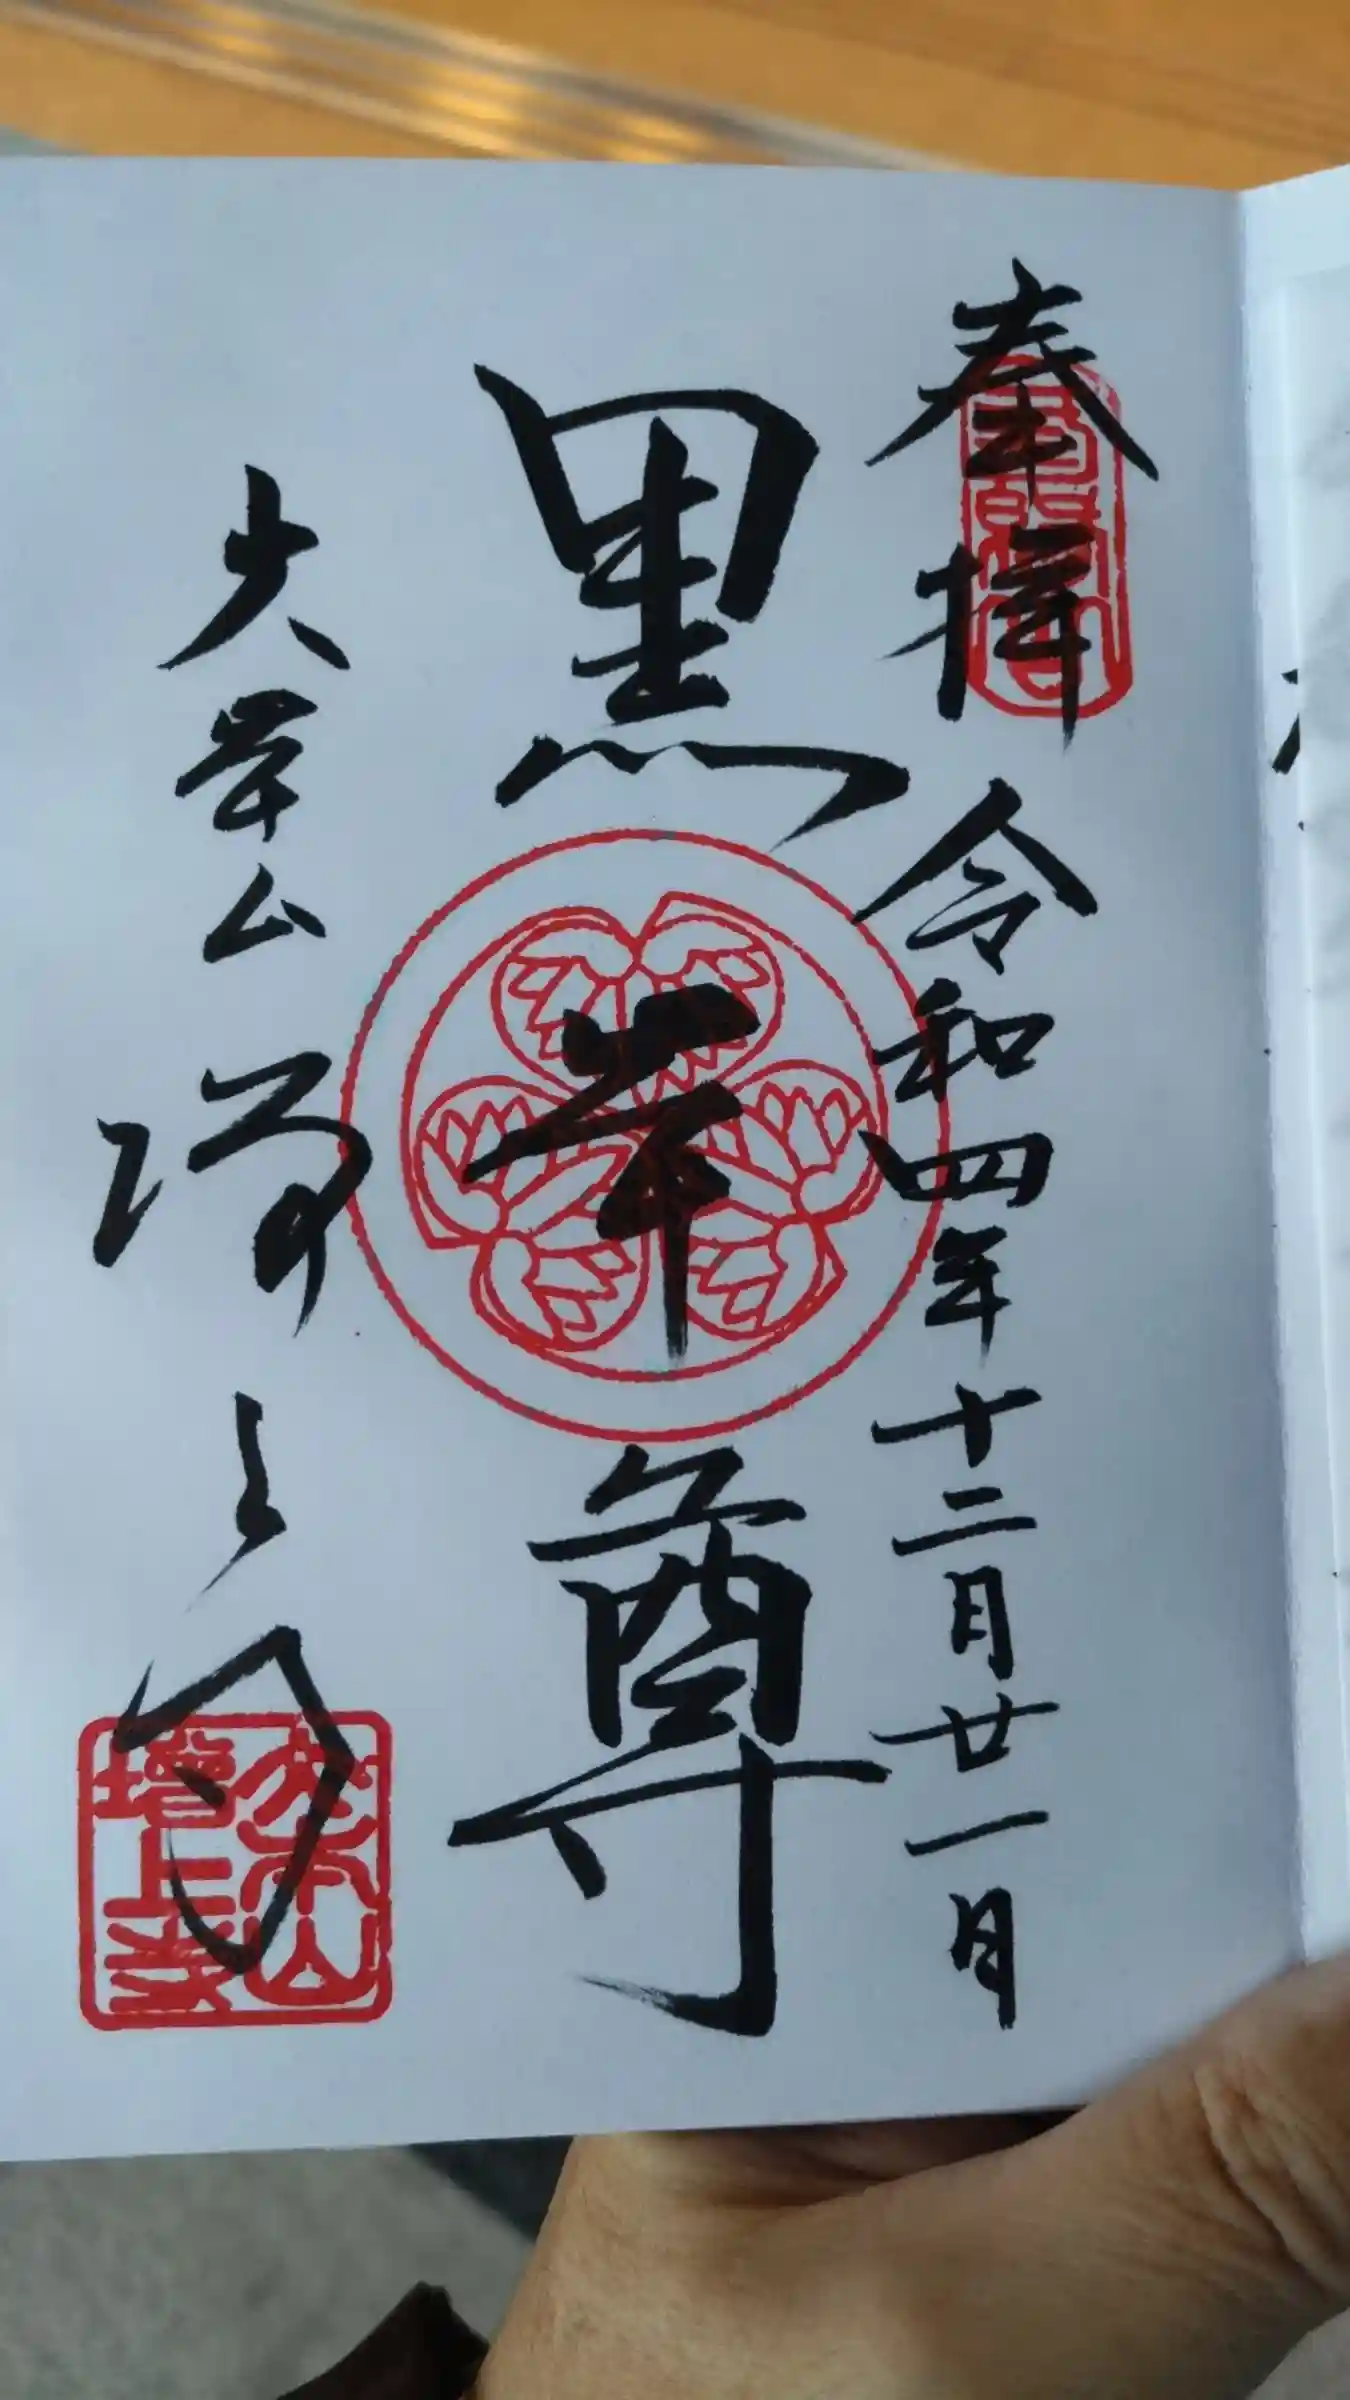 奉拝 令和四年十二月廿一日
黒本尊
大本山 増上寺
大本山
増上寺